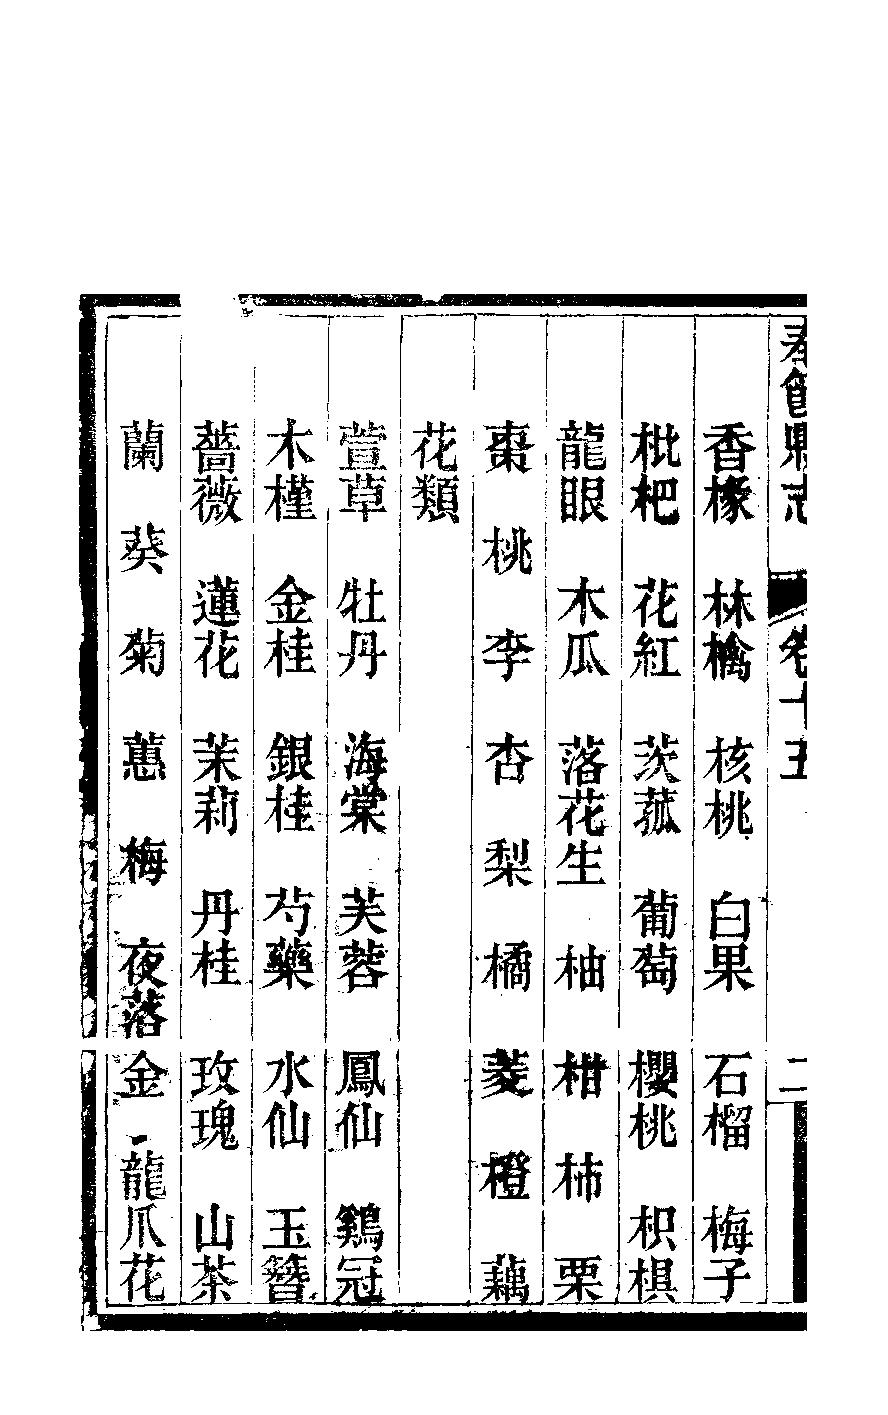 奉節縣志 卷十五 二
香櫞 林檎 核桃 白果 石榴 梅子
枇杷 花紅 茨菰 葡萄 櫻桃 枳椇
龍眼 木瓜 落花生 柚 柑 柿 栗
棗 桃 李 杏 梨 橘 菱 橙 藕
花類
萱草 牡丹 海棠 芙蓉 鳳仙 鷄冠
木槿 金桂 銀桂 芍藥 水仙 玉簪
薔薇 蓮花 茉莉 丹桂 玫瑰 山茶
蘭 葵 菊 蕙 梅 夜落金 龍爪花